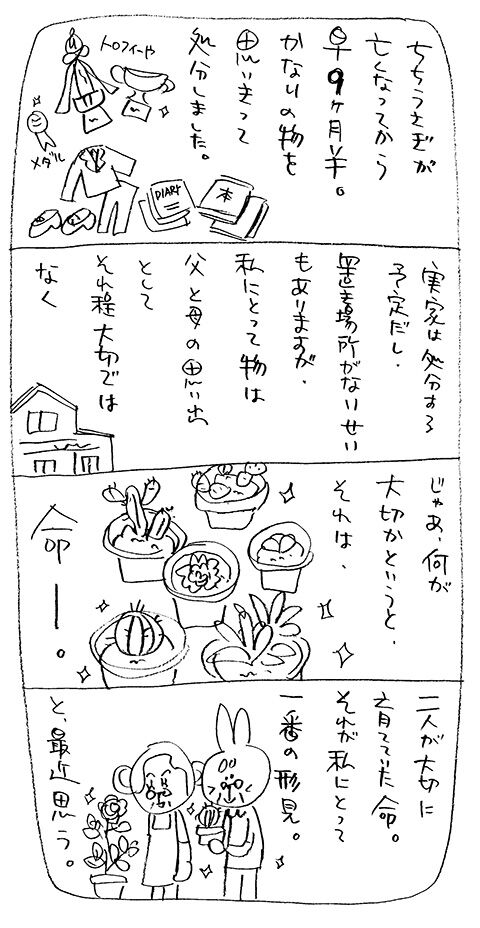 ちちうさぎが
亡くなってから
早9ヶ月半。
かなりの物を
思いきって
処分しました。
トロフィーや
メダル
DIARY
本
実家は処分する
予定だし、
置き場所がないせい
もありますが、
私にとって物は
父と母の思い出
として
それ程大切では
なく
じゃあ、何が
大切かというと、
それは、
命ー。
二人が大切に
育てていた命。
それが私にとって
一番の形見。
と、最近思う。